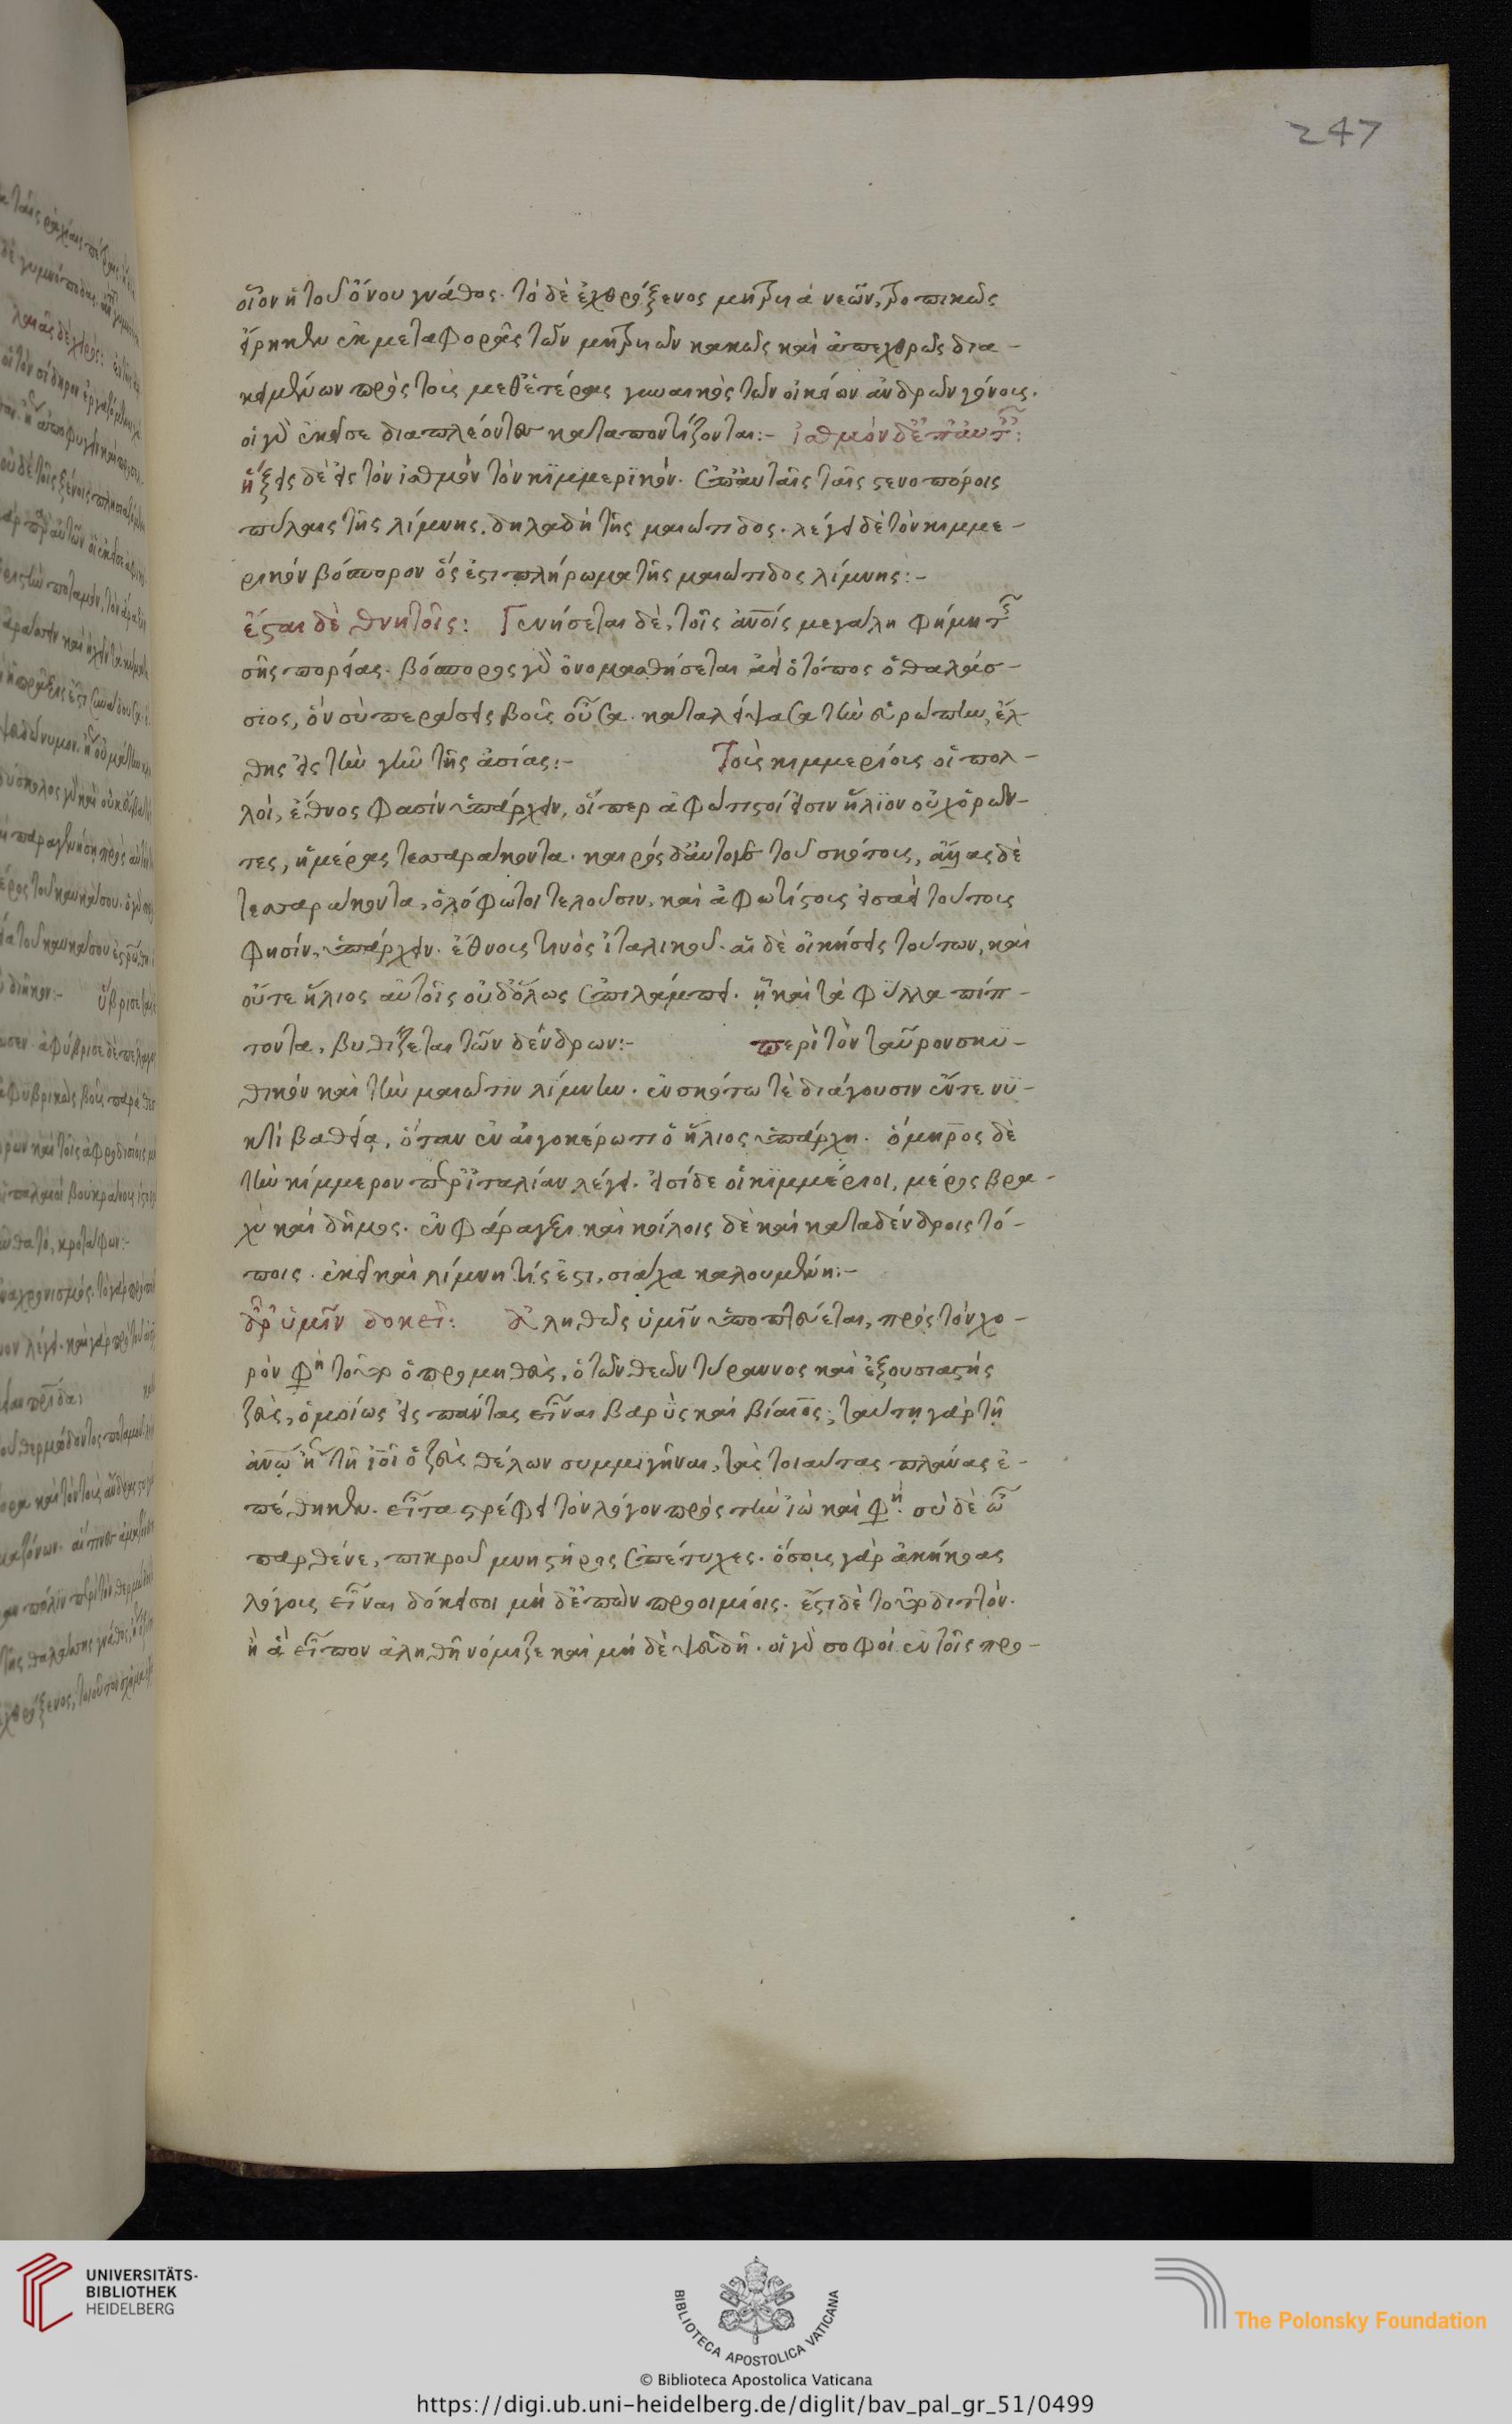 247
οἷον ἡ τοῦ ὄνου γνάθος. τὸ δὲ ἐχθρόξενος μητρυιὰ νεῶν, τροπικῶς
εἴρηκεν ἐκ μεταφορᾶς τῶν μητρυιῶν κακῶς καὶ ἀπεχθρῶς δια-
κειμένων πρὸς τοὺς μεθ' ἑτέρας γυναικὸς τῶν οἰκείων ἀνδρῶν γόνους.
οἱ γὰρ ἐκεῖσε διαπλέοντες καταποντίζονται:- ἰσθμὸν δ' ἐπ' αὐτ:
ἥξεις δὲ εἰς τὸν ἰσθμὸν τὸν κϊμμερϊκόν. ἐπ' αὐταῖς ταῖς στενοπόροις
πύλαις τῆς λίμνης. δηλαδὴ τῆς μαιώτιδος. λέγει δὲ τὸν κιμμε-
ρικὸν βόσπορον ὅς ἐστι πλήρωμα τῆς μαιώτιδος λίμνης:-
ἔσται δὲ θνητοῖς: Γενήσεται δὲ, τοῖς ἀνοῖς μεγάλη φήμη τῆς
σῆς πορείας. βόσπορος γὰρ ὀνομασθήσεται ἀεὶ ὁ τόπος ὁ θαλάσ-
σιος, ὃν σὺ περάσεις βοῦς οὖσα. καταλείψασα τὴν εὐρώπην, ἔλ-
θης εἰς τὴν γῆν τῆς ἀσίας:- Τοὺς κιμμερίους οἱ πολ-
λοὶ, ἔθνος φασὶν ὑπάρχειν, οἵπερ ἀφώτιστοί εἰσιν ἥλϊον οὐχ ὁρῶν-
τες, ἡμέρας τεσσαράκοντα. καιρὸς δ' αὐτοῖς τοῦ σκότους, ἄλλας δὲ
τεσσαράκοντα, ὁλόφωτοι τελοῦσιν, καὶ ἀφωτίστους εἰσαεὶ τούτους
φησίν, ὑπάρχειν. ἔθνους τινὸς ἰταλικοῦ. αἱ δὲ οἰκήσεις τούτων, καὶ
οὔτε ἥλιος αὐτοῖς οὐδόλως ἐπιλάμπει. ᾗ καὶ τὰ φύλλα πίπ-
τοντα, βυθίζεται τῶν δένδρων:- περὶ τὸν ταῦρον σκυ-
θικὸν καὶ τὴν μαιῶτιν λίμνην. ἐν σκότω τὲ διάγουσιν ἔν τε νυ-
κτὶ βαθείᾳ, ὅταν ἐν αἰγοκέρωτι ὁ ἥλιος ὑπάρχη. ὅμηρος δὲ
τὴν κίμμερον περὶ ἰταλίαν λέγει. εἰσὶ δὲ οἱ κϊμμέριοι, μέρος βρα-
χὺ καὶ δῆμος. ἐν φάραγξι καὶ κοίλοις δὲ καὶ καταδένδροις τό-
ποις. ἐκεῖ καὶ λίμνη τίς ἐστι, σιάχα καλουμένη:-
ἆρ' ὑμῖν δοκεῖ: Ἀληθῶς ὑμῖν ὑποπτεύεται, πρὸς τὸν χο-
ρὸν φη τοῦτο ὁ προμηθεὺς, ὁ τῶν θεῶν τύραννος καὶ ἐξουσιαστὴς
ζεὺς, ὁμοίως εἰς πάντας εἶναι βαρὺς καὶ βίαιος; ταύτῃ γὰρ τῇ
ἀνῳ ἤτοι τῇ ἰοῖ ὁ ζεὺς θέλων συμμιγῆναι, τὰς τοιαύτας πλάνας ἐ-
πέθηκεν. εἶτα στρέφει τὸν λόγον πρὸς τὴν ἰὼ καὶ φη. σὺ δὲ ὦ
παρθένε, πικροῦ μνηστῆρος ἐπέτυχες. ὅσους γὰρ ἀκήκοας
λόγους εἶναι δόκει σοι μὴ δέπων προοιμίοις. ἔστι δὲ τοῦτο διττόν.
ἢ ἃ εἶπον ἀληθῆ νόμιζε καὶ μὴ δὲ ψευδῆ. οἱ γὰρ σοφοὶ ἐν τοῖς προ-
UNIVERSITÄTS-
BIBLIOTHEK
HEIDELBERG
BIBLIOTECA APOSTOLICA VATICANA
The Polonsky Foundation
© Biblioteca Apostolica Vaticana
https://digi.ub.uni-heidelberg.de/diglit/bav_pal_gr_51/0499